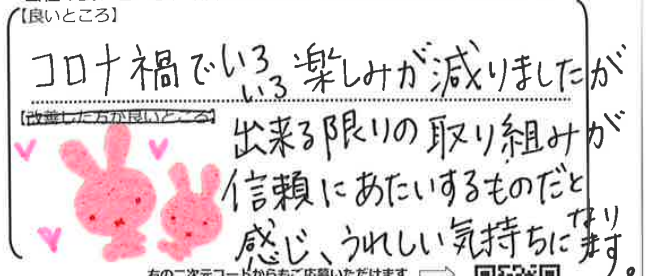 【良いところ】
コロナ禍でいろいろ楽しみが減りましたが
【改善した方が良いところ】
出来る限りの取り組みが
信頼にあたいするものだと
感じ、うれしい気持ちになります。
右の二次元コードからもご応募いただけます